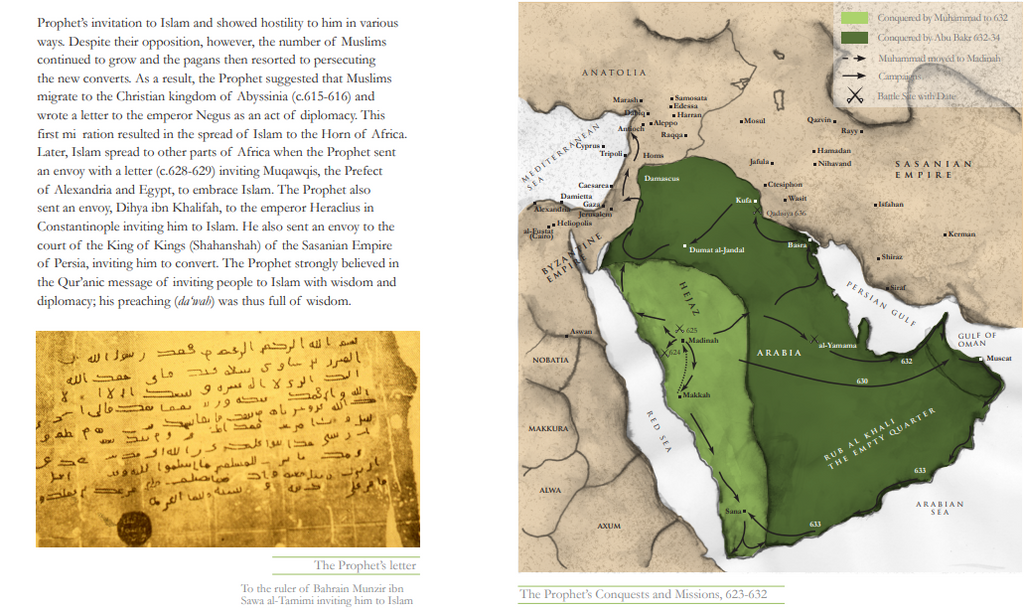 Prophet's invitation to Islam and showed hostility to him in various
ways. Despite their opposition, however, the number of Muslims
continued to grow and the pagans then resorted to persecuting
the new converts. As a result, the Prophet suggested that Muslims
migrate to the Christian kingdom of Abyssinia (c.615-616) and
wrote a letter to the emperor Negus as an act of diplomacy. This
first mi ration resulted in the spread of Islam to the Horn of Africa.
Later, Islam spread to other parts of Africa when the Prophet sent
an envoy with a letter (c.628-629) inviting Muqawqis, the Prefect
of Alexandria and Egypt, to embrace Islam. The Prophet also
sent an envoy, Dihya ibn Khalifah, to the emperor Heraclius in
Constantinople inviting him to Islam. He also sent an envoy to the
court of the King of Kings (Shahanshah) of the Sasanian Empire
of Persia, inviting him to convert. The Prophet strongly believed in
the Qur'anic message of inviting people to Islam with wisdom and
diplomacy; his preaching (da'wah) was thus full of wisdom.
The Prophet's letter
To the ruler of Bahrain Munzir ibn
Sawa al-Tamimi inviting him to Islam
Conquered by Muhammad to 632
Conquered by Abu Bakr 632-34
Muhammad moved to Madinah
Campaigns
Battle Site with Date
ANATOLIA
Marash
Samosata
Edessa
Dabiq
Harran
Antioch
Aleppo
Raqqa
Mosul
Qazvin
Rayy
MEDITERRANEAN
SEA
Cyprus
Tripoli
Homs
Jafula
Hamadan
Nihavand
SASANIAN
EMPIRE
Damascus
Caesarea
Ctesiphon
Damietta
Gaza
Alexandria
Jerusalem
Kufa
Wasit
Qadisiya 636
Isfahan
Heliopolis
al-Fustat
(Cairo)
BYZANTINE
EMPIRE
Dumat al-Jandal
Basra
Kerman
Shiraz
Siraf
PERSIAN GULF
HEJAZ
625
Madinah
624
Aswan
NOBATIA
ARABIA
al-Yamama
GULF OF
OMAN
Muscat
632
630
Makkah
RED SEA
MAKKURA
RUB AL KHALI
THE EMPTY QUARTER
633
ALWA
Sana
633
AXUM
ARABIAN
SEA
The Prophet's Conquests and Missions, 623-632